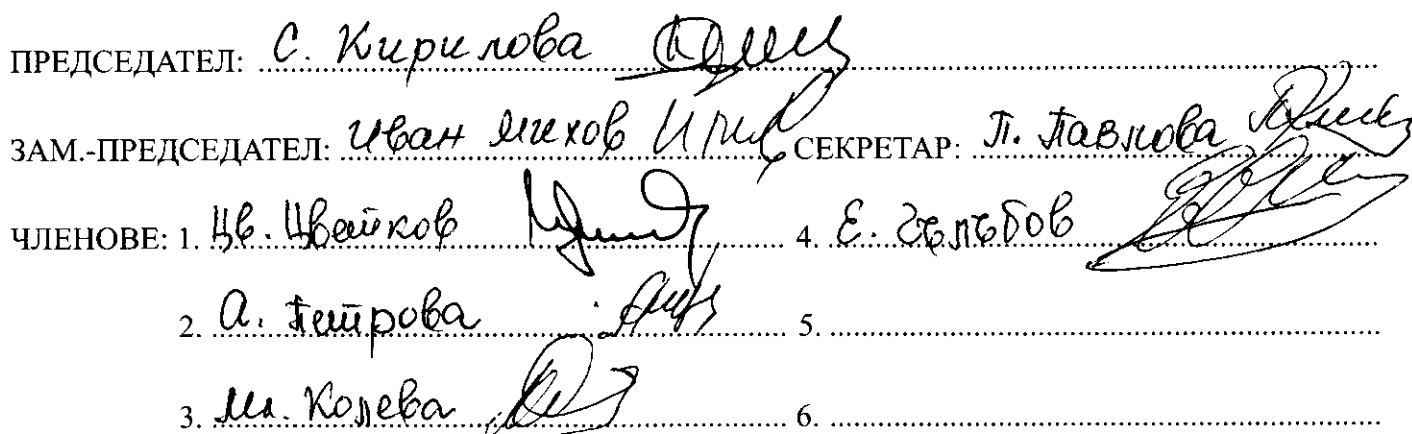 ПРЕДСЕДАТЕЛ: С. Кирилова
ЗАМ.-ПРЕДСЕДАТЕЛ: Иван Михов СЕКРЕТАР: П. Павлова
ЧЛЕНОВЕ: 1. Цв. Цветков 4. Е. Гълъбов
2. А. Петрова 5.
3. Мл. Колева 6.